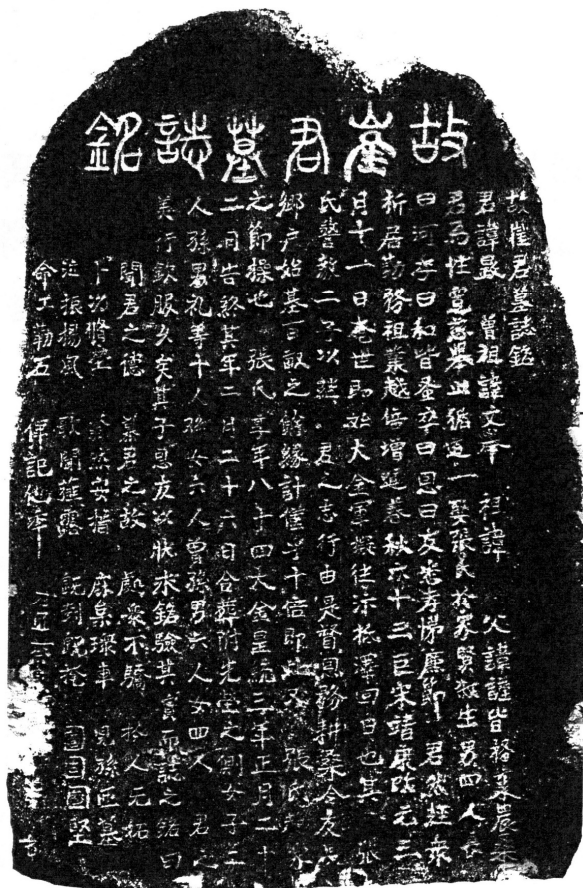 故崔君墓誌銘
故崔君墓誌銘
君諱 曾祖諱文奉 祖諱 父諱謹皆務桑農
君為性寬慈舉止循道一娶張氏於家賢淑生男四人長
曰河次曰和皆蚤卒曰思曰友悉孝悌廉節 君然經衆
析居勤務祖業越倍增進春秋六十三巨宋靖康改元三
月十一日奄世即始大金軍擬往汴抵澤回日也其 張
氏警教二子以然 君之志行由是賢思務耕桑令友
鄉户始基百畝之餘緣計僅乎十倍即此 張氏
之節操也 張氏享年八十四大金皇統三年正月二十
二日告終其年二月二十六日合葬附先塋之側女子二
人孫男礼等十人孫女六人曾孫男六人女四人 君之
美行欽服久矣其子思友以狀求銘驗其實而誌之銘曰
聞君之德 慕君之故 顧衆不驕 於人无妬
卜功脩塋 安措 車 見孫匝墓
泣振揚風 歌聞薤露 既刻既 固堅
命工勒石 俾記他年